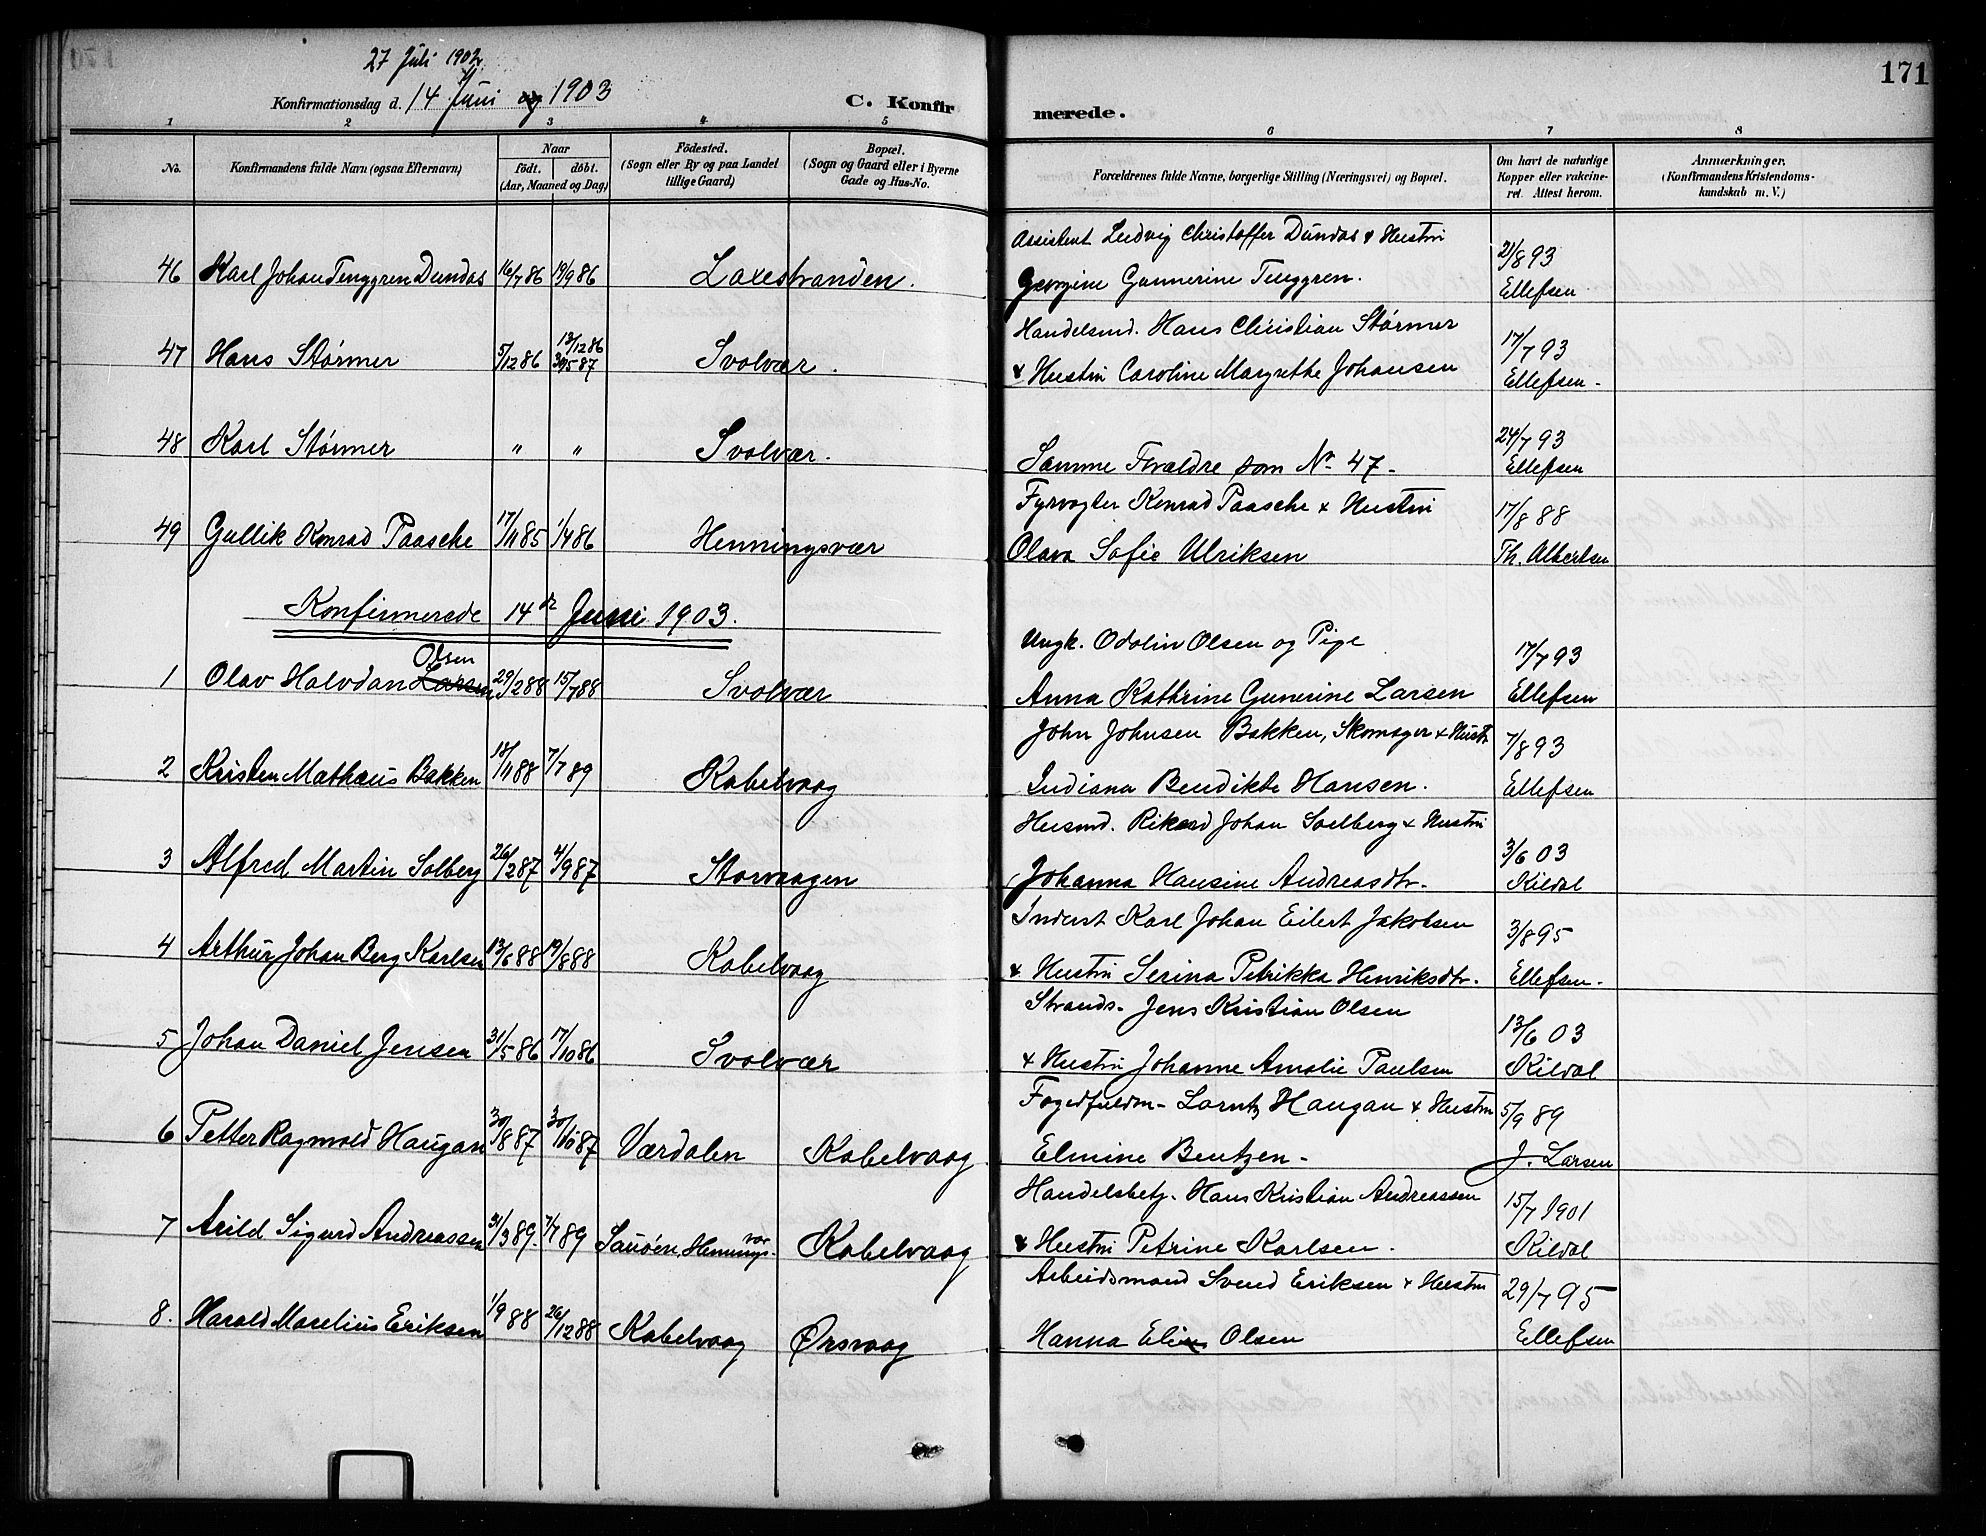 27 Juli 1902
Konfirmationsdag d. 14 Juni og 1903
C. Konfirmerede.
171
1 2 3 4 5 6 7 8
No.
Konfirmandens fulde Navn (ogsaa Efternavn)
Naar
født. døbt.
(Aar, Maaned og Dag)
Fødested.
(Sogn eller By og paa Landet
tillige Gaard)
Bopæl.
(Sogn og Gaard eller i Byerne
Gade og Hus-No.
Forældrenes fulde Navne, borgerlige Stilling (Næringsvei) og Bopæl.
Om havt de naturlige
Kopper eller vakcine-
ret. Attest herom.
Anmærkninger.
(Konfirmandens Kristendoms-
kundskab m. V.)
Assistent Ludvig Christoffer Dundas & Hustru
46 Karl Johan Tenggren Dundas 16/7 86 19/9 86 Laxestranden. Georgine Gunnerine Tenggren. 21/8 93 Ellefsen
Handelsmd. Hans Christian Størmer
47 Hans Størmer 5/12 86 13/12 86 30/5 87 Svolvær. & Hustru Caroline Margrethe Johansen 17/7 93 Ellefsen-
48 Karl Størmer " " Svolvær. Samme Forældre som No 47- 24/7 93 Ellefsen
Fyrvogter Konrad Paasche & Hustru
49 Gullik Konrad Paasche 17/11 85 1/4 86 Henningsvær Olava Sofie Ulriksen 17/8 88 Th. Albertsen
Konfirmerede 14de Juni 1903.
Ungk. Odolin Olsen og Pige
1 Olav Halvdan Larsen Olsen 29/2 88 15/7 88 Svolvær Anna Kathrine Gunerine Larsen 17/7 93 Ellefsen
John Johnsen Bakken, Skomager & Hustr
2 Kristen Mathæus Bakken 18/11 88 7/7 89 Kabelvaag Indiana Bendikte Hansen. 7/8 93 Ellefsen
Husmd. Rikard Johan Solberg & Hustru
3 Alfred Martin Solberg 26/2 87 4/9 87 Storvaagen Johanna Hansine Andreasdtr. 3/6 03 Kildal
Inderst Karl Johan Eilert Jakobsen
4 Arthur Johan Berg Karlsen 13/6 88 19/8 88 Kabelvaag & Hustru Serina Petrikka Henriksdtr. 3/8 95 Ellefsen.
Strands. Jens Kristian Olsen
5 Johan Daniel Jensen 31/5 86 17/10 86 Svolvær & Hustru Johanne Amalie Paulsen 13/6 03 Kildal
Fogedfuldm- Lorntz Haugan & Hustru
6 Petter Ragnvald Haugan 30/8 87 30/10 87 Værdalen Kabelvaag. Elmine Bentzen- 5/9 89 J. Larsen
Handelsbetj. Hans Kristian Andreassen
7 Arild Sigurd Andreassen 31/3 89. 7/7 89 Sauøen, Henningsvær Kabelvaag & Hustru Petrine Karlsen. 15/7 1901 Kildal
Arbeidsmand Svend Eriksen & Hustru
8. Harald Marelius Eriksen 1/9 88 26/12 88 Kabelvaag Ørsvaag Hanna Olsen 29/7 95 Ellefsen